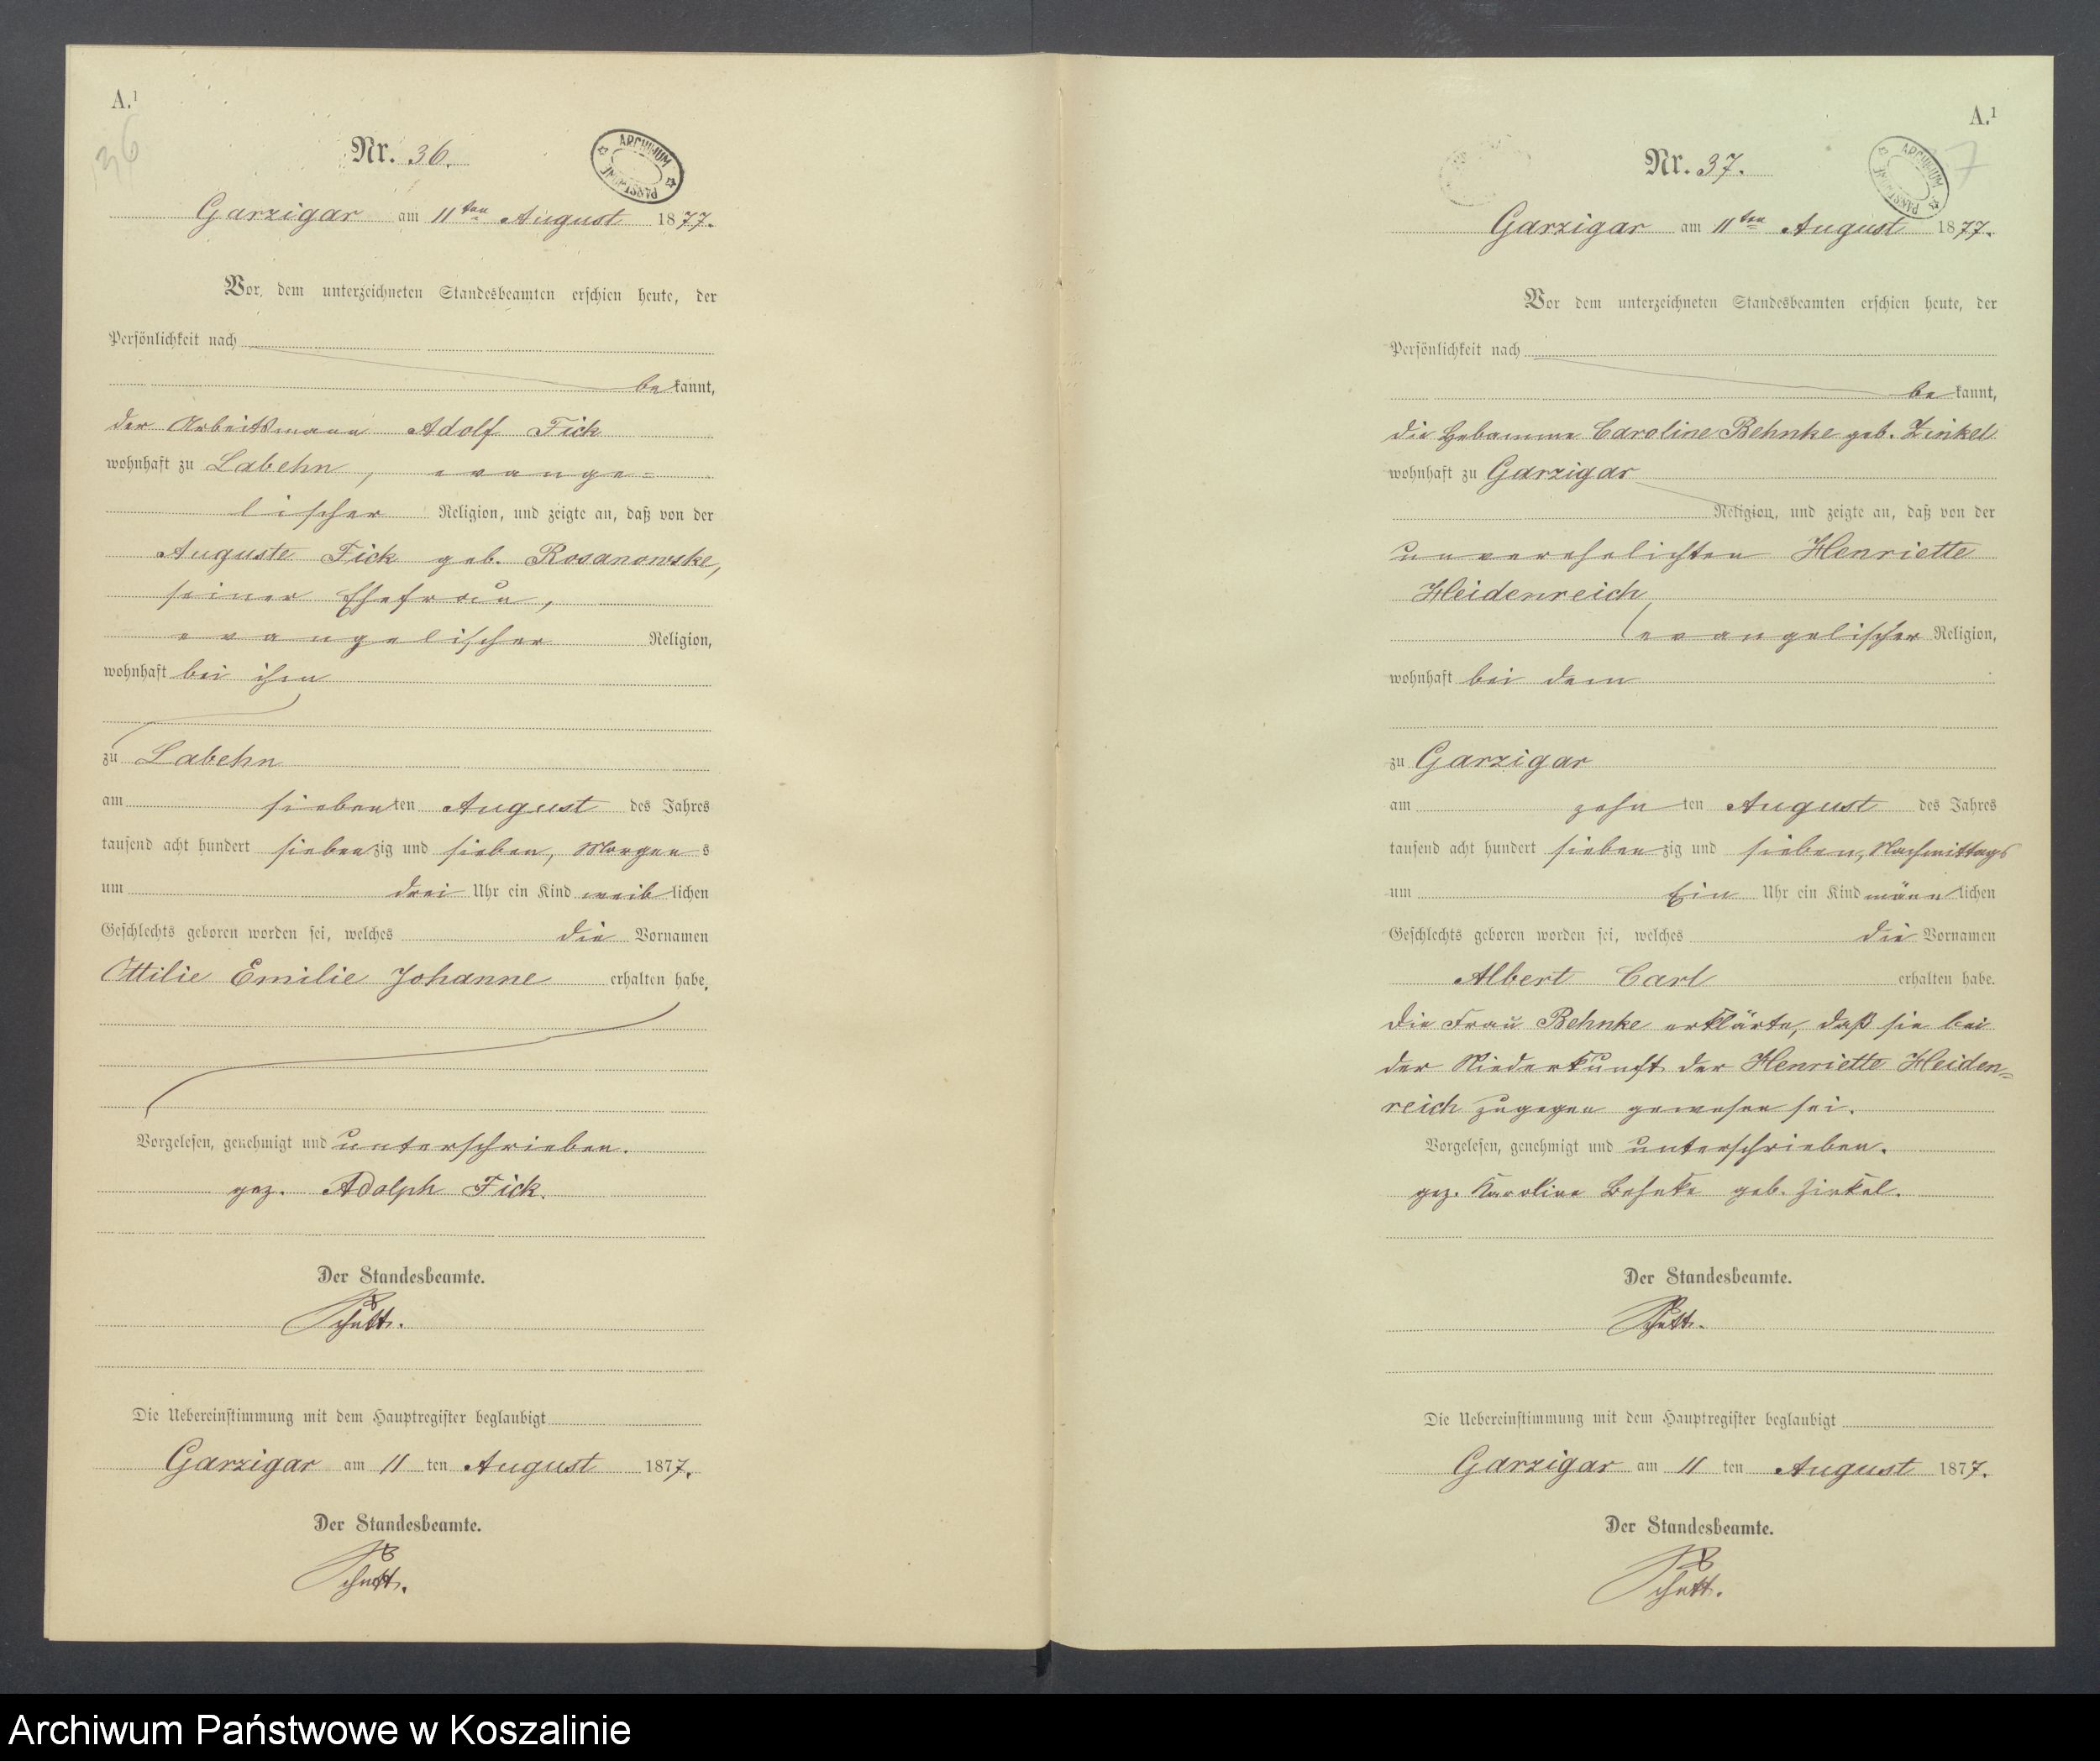 A.¹
36
Nr. 36.
ARCHIWUM PAŃSTWOWE
Garzigar am 11ten August 1877.
Vor dem unterzeichneten Standesbeamten erschien heute, der
Persönlichkeit nach
bekannt,
der Arbeitsmann Adolf Fick
wohnhaft zu Labehn, evange=
lischer Religion, und zeigte an, daß von der
Auguste Fick geb. Rosanowske,
seiner Ehefrau,
evangelischer Religion,
wohnhaft bei ihm
zu Labehn
am siebenten August des Jahres
tausend acht hundert siebenzig und sieben, Morgens
um drei Uhr ein Kind weiblichen
Geschlechts geboren worden sei, welches die Vornamen
Ottilie Emilie Johanne erhalten habe.
Vorgelesen, genehmigt und unterschrieben.
gez. Adolph Fick.
Der Standesbeamte.
Die Uebereinstimmung mit dem Hauptregister beglaubigt
Garzigar am 11ten August 1877.
Der Standesbeamte.
A.¹
37
Nr. 37.
ARCHIWUM PAŃSTWOWE
Garzigar am 11ten August 1877.
Vor dem unterzeichneten Standesbeamten erschien heute, der
Persönlichkeit nach
bekannt,
die Hebamme Caroline Behnke geb. Zinkel
wohnhaft zu Garzigar
Religion, und zeigte an, daß von der
unverehelichten Henriette
Heidenreich,
evangelischer Religion,
wohnhaft bei dem
zu Garzigar
am zehnten August des Jahres
tausend acht hundert siebenzig und sieben, Nachmittags
um Ein Uhr ein Kind männlichen
Geschlechts geboren worden sei, welches die Vornamen
Albert Carl erhalten habe.
Die Frau Behnke erklärte, daß sie bei
der Niederkunft der Henriette Heiden=
reich zugegen gewesen sei.
Vorgelesen, genehmigt und unterschrieben.
gez. Karoline Behnke geb. Zinkel.
Der Standesbeamte.
Die Uebereinstimmung mit dem Hauptregister beglaubigt
Garzigar am 11ten August 1877.
Der Standesbeamte.
Archiwum Państwowe w Koszalinie